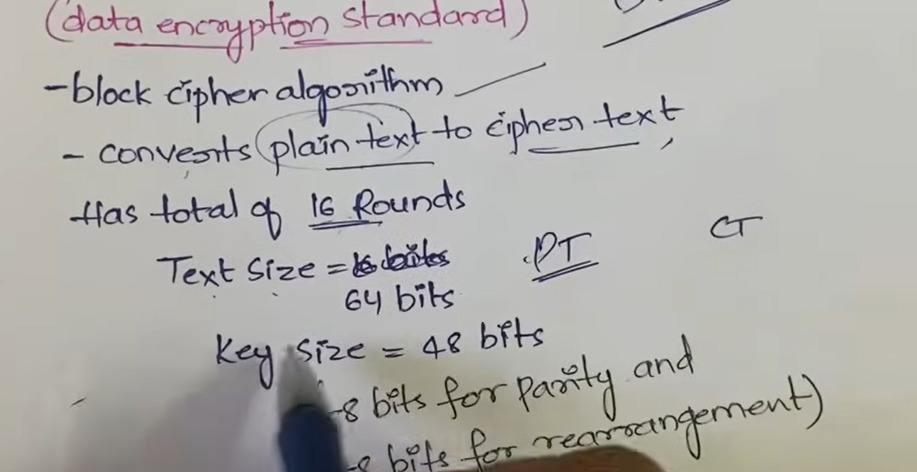 (data encryption standard)
-block cipher algorithm
- converts plain text to cipher text,
Has total of 16 Rounds
Text Size =
64 bits
PT
CT
Key Size = 48 bits
-8 bits for parity and
bits for rearrangement)